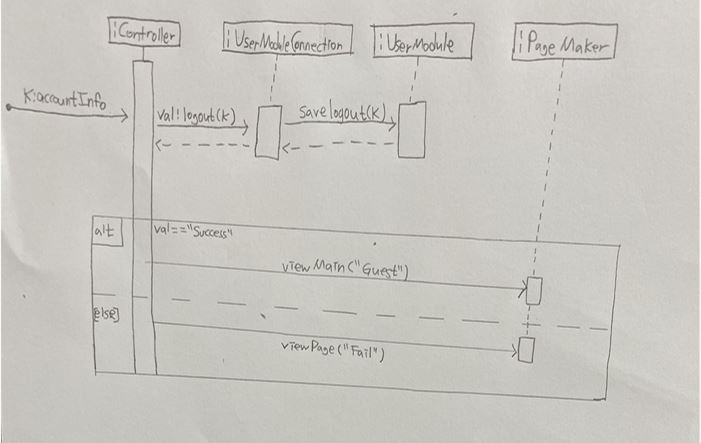 :Controller
:UserModuleConnection
:UserModule
:PageMaker
K:accountInfo
val:logout(K)
savelogout(K)
alt
val=="Success"
viewMain("Guest")
[else]
viewPage("Fail")